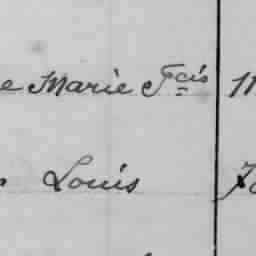 e Marie Fcis
Louis